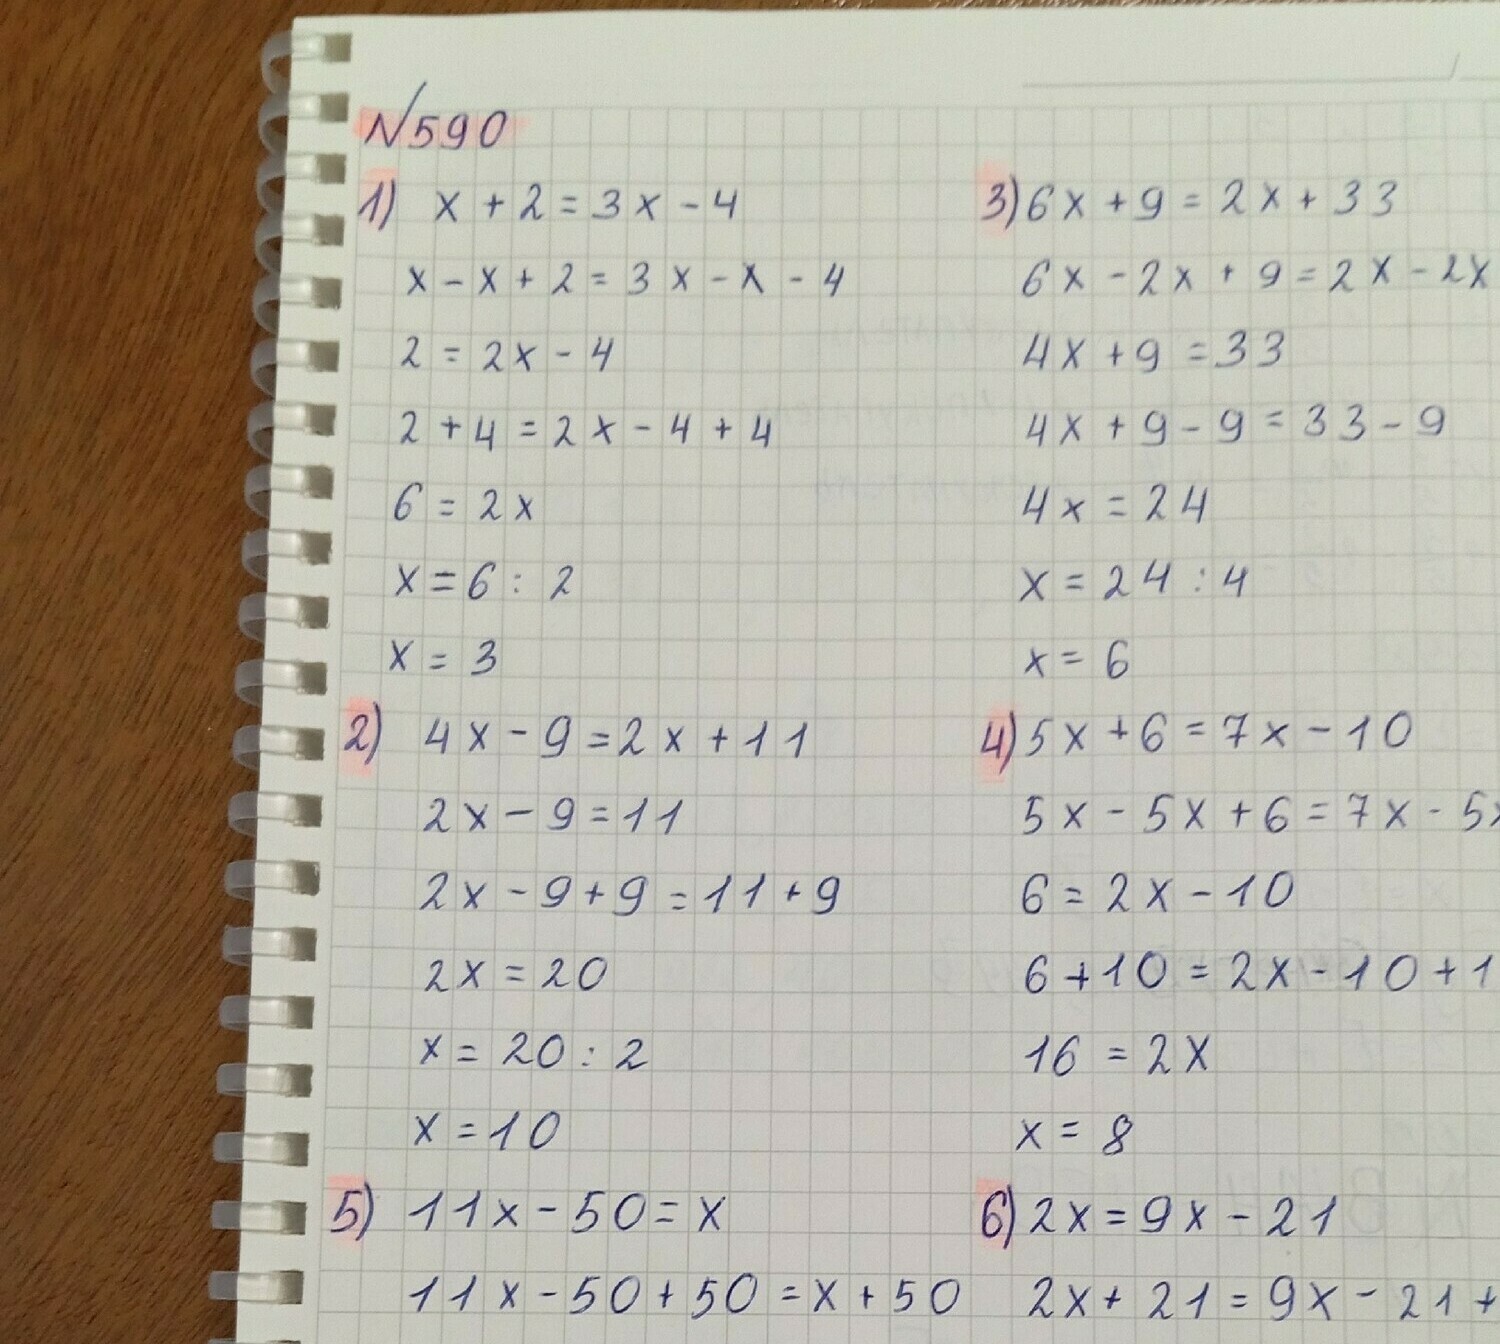 №590
1) x + 2 = 3x - 4
x - x + 2 = 3x - x - 4
2 = 2x - 4
2 + 4 = 2x - 4 + 4
6 = 2x
x = 6 : 2
x = 3
2) 4x - 9 = 2x + 11
2x - 9 = 11
2x - 9 + 9 = 11 + 9
2x = 20
x = 20 : 2
x = 10
5) 11x - 50 = x
11x - 50 + 50 = x + 50
3) 6x + 9 = 2x + 33
6x - 2x + 9 = 2x - 2x
4x + 9 = 33
4x + 9 - 9 = 33 - 9
4x = 24
x = 24 : 4
x = 6
4) 5x + 6 = 7x - 10
5x - 5x + 6 = 7x - 5x
6 = 2x - 10
6 + 10 = 2x - 10 + 1
16 = 2x
x = 8
6) 2x = 9x - 21
2x + 21 = 9x - 21 +